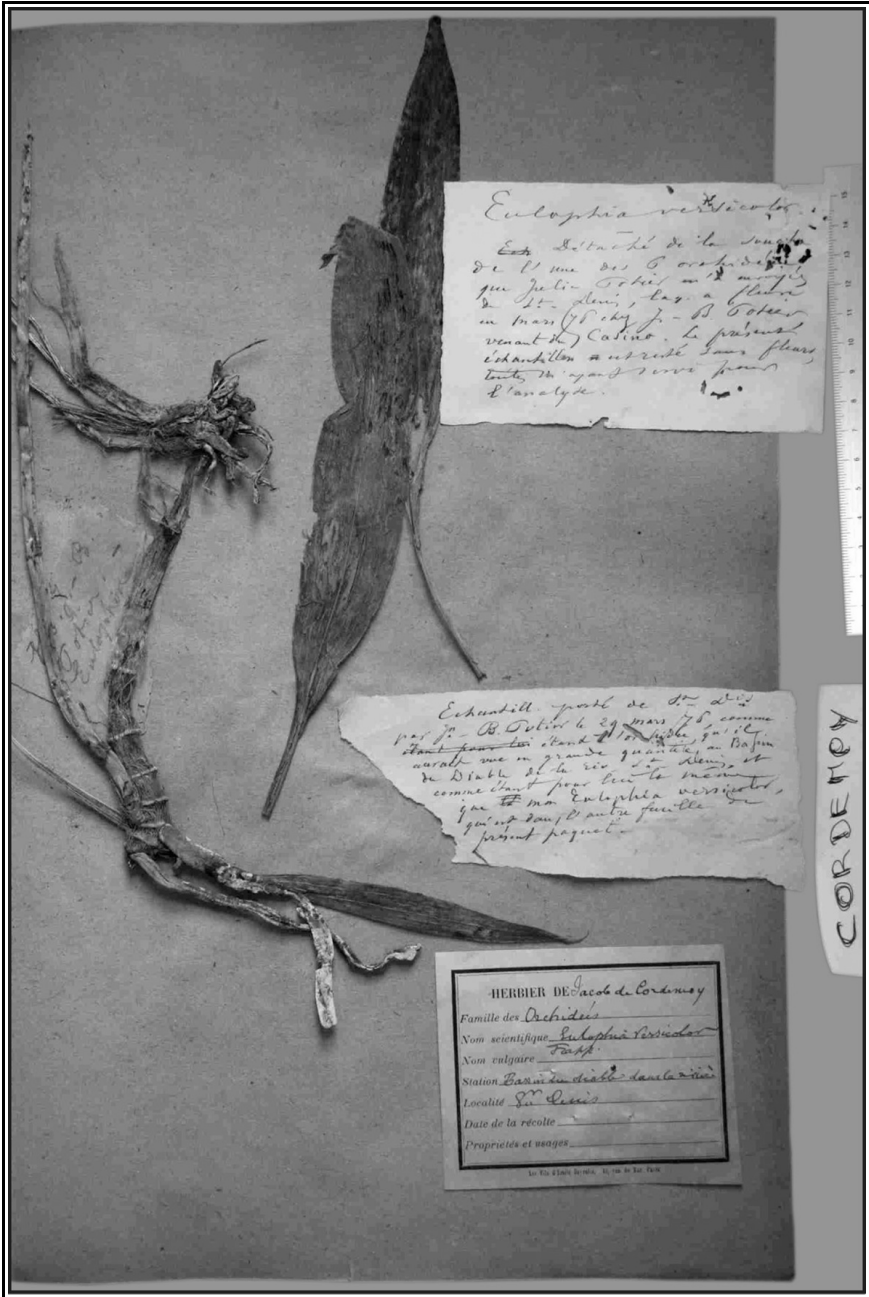 Eulophia versicolor.
Ech Détaché de la souche
de l'une des 6 orchidées
que Julin Potier m'a envoyés
de St- Denis, laq. a fleuri
en mars 76 chez J- B Potier
venant du Casino. Le présent
échantillon est resté sans fleurs,
toutes ayant servi pour
l'analyse.
J- B.
Potier
Eulophia
Echantill. porté de St- Dis
par Jn- B. Potier le 29 mars 76, comme
étant pour lui étant l'orchidée qu'il
aurait vue en grande quantité, au Bassin
du Diable de la riv St Denis, et
comme étant pour lui la même
que mon Eulophia versicolor,
qui est dans l'autre feuille du
présent paquet.
CORDEMOY
HERBIER DE Jacob de Cordemoy
Famille des Orchideés
Nom scientifique Eulophia versicolor
Frapp.
Nom vulgaire
Station Bassin du diable dans la
Localité St Denis
Date de la récolte
Propriétés et usages
Les Fils d'Emile Deyrolle, 46, rue du Bac Paris
15
14
13
12
11
10
9
8
7
6
5
4
3
2
1